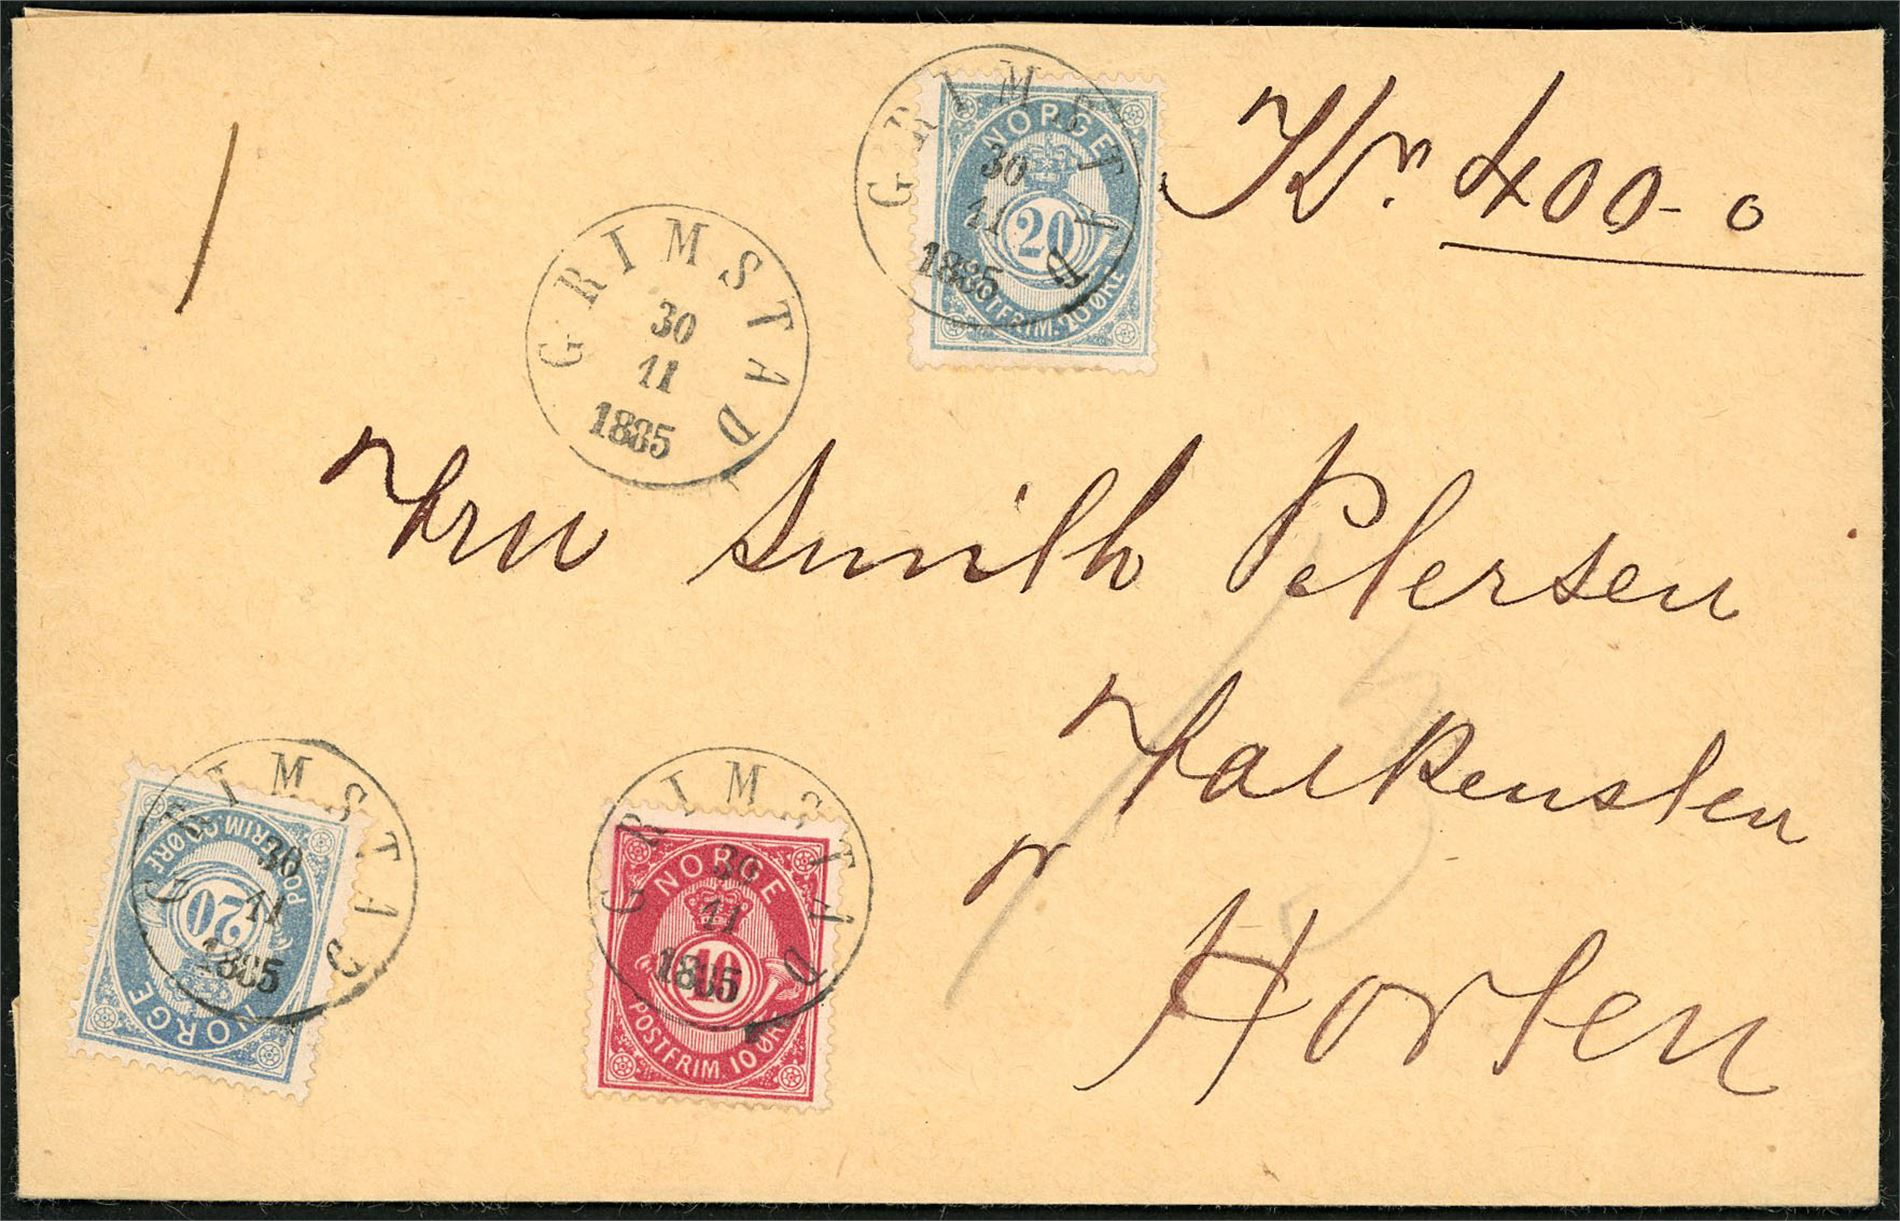 Kr. 400-0
GRIMSTAD
30
11
1885
NORGE
20
POSTFRIM. 20 ØRE
GRIMSTAD
30
11
1885
Fru Smith Petersen
Falkensten
pr
Horten
GRIMSTAD
30
11
1885
NORGE
20
POSTFRIM. 20 ØRE
GRIMSTAD
30
11
1885
NORGE
10
POSTFRIM. 10 ØRE